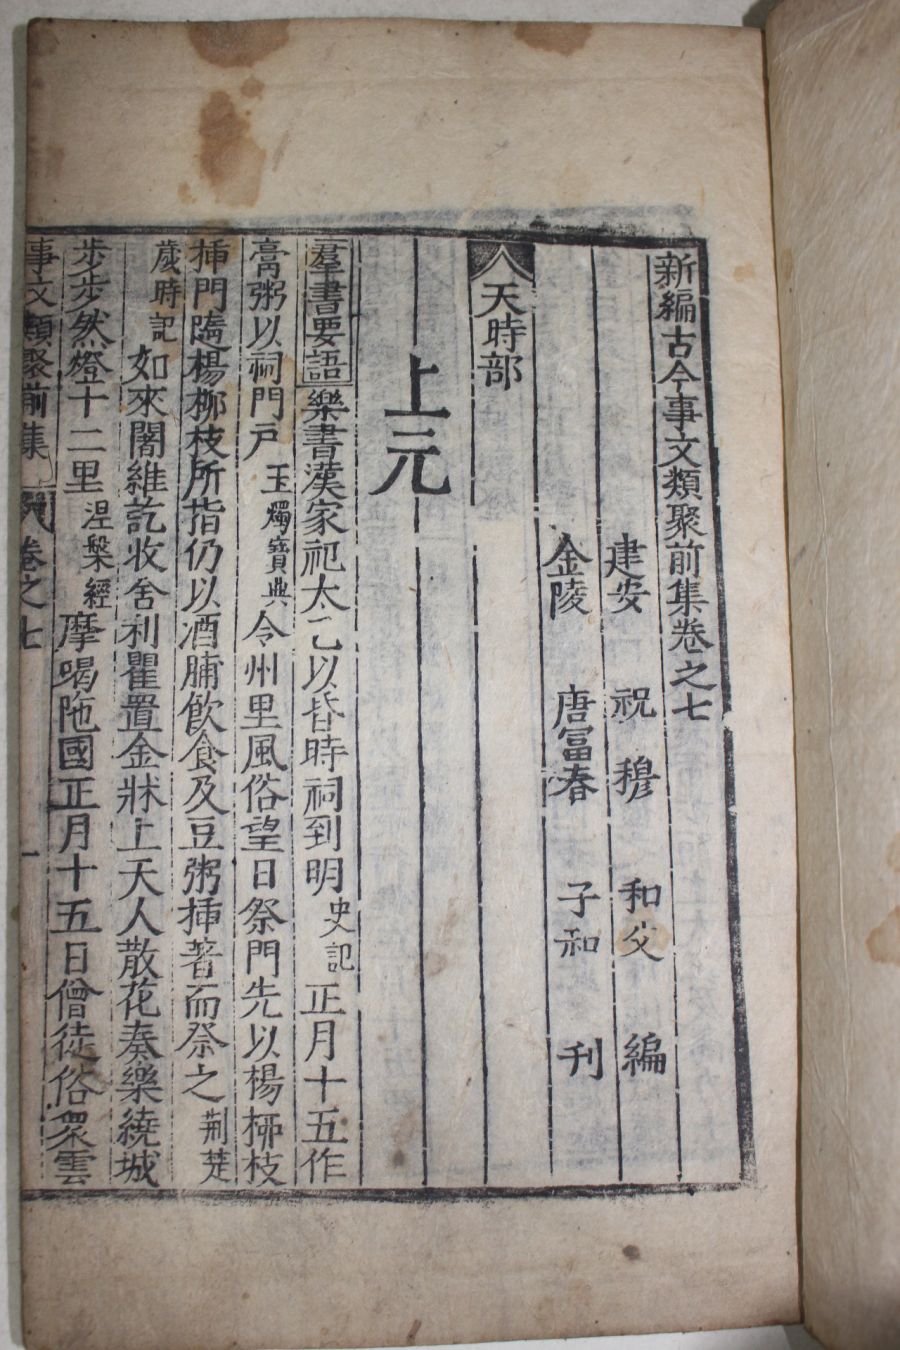 新編古今事文類聚前集卷之七
建安 祝 穆 和父 編
金陵 唐富春 子和 刊
天時部
上元
羣書要語樂書漢家祀太乙以昏時祠到明史記正月十五作
膏粥以祠門戶玉燭寶典令州里風俗望日祭門先以楊桞枝
揷門隨楊桞枝所指仍以酒脯飲食及豆粥揷著而祭之荆楚
歲時記如來闍維訖收舍利罌置金牀上天人散花奏樂繞城
步步然燈十二里涅槃經摩竭陁國正月十五日僧徒俗衆雲
事文類聚前集 卷之七 一